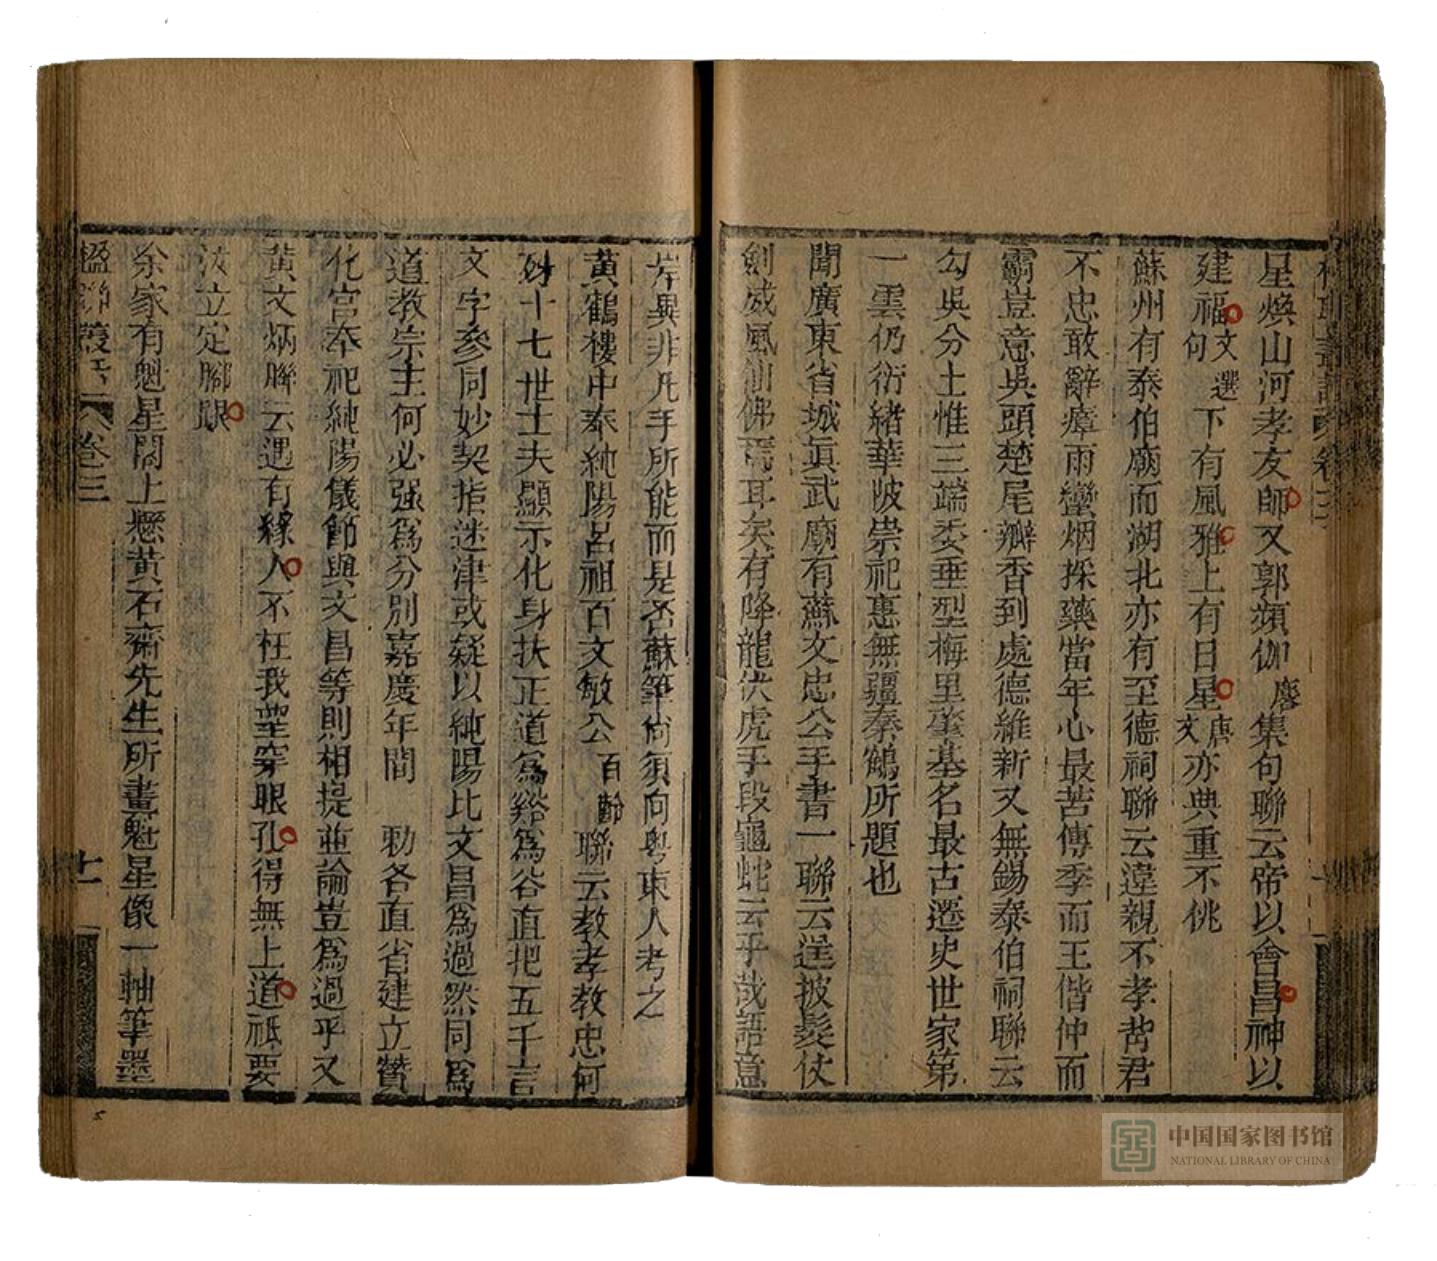 星煥山河孝友師又郭頻伽麐集句聯云帝以會昌神以
建福文選句下有風雅上有日星唐文亦典重不佻
蘇州有泰伯廟而湖北亦有至德祠聯云違親不孝背君
不忠敢辭瘴雨蠻烟採藥當年心最苦傳季而王偕仲而
霸豈意吳頭楚尾瓣香到處德維新又無錫泰伯祠聯云
勾吳分土惟三端委垂型梅里肇基名最古遷史世家第
一雲仍衍緒華陂崇祀惠無疆秦鶴所題也
聞廣東省城眞武廟有蘇文忠公手書一聯云逞披髮仗
劍威風仙佛焉耳矣有降龍伏虎手段龜蛇云乎哉語意
岸異非凡手所能而是否蘇筆尙須向粵東人考之
黃鶴樓中奉純陽呂祖百文敏公百齡聯云教孝教忠何
妙十七世士夫顯示化身扶正道爲谿爲谷直把五千言
文字參同妙契指迷津或疑以純陽比文昌爲過然同爲
道教宗主何必强爲分別嘉慶年間 勅各直省建立贊
化宮奉祀純陽儀節與文昌等則相提並論豈爲過乎又
黃文炳聯云遇有緣人不枉我望穿眼孔得無上道祇要
汝立定腳跟
余家有魁星閣上懸黃石齋先生所畫魁星像一軸筆墨
楹聯叢話 卷三 十一